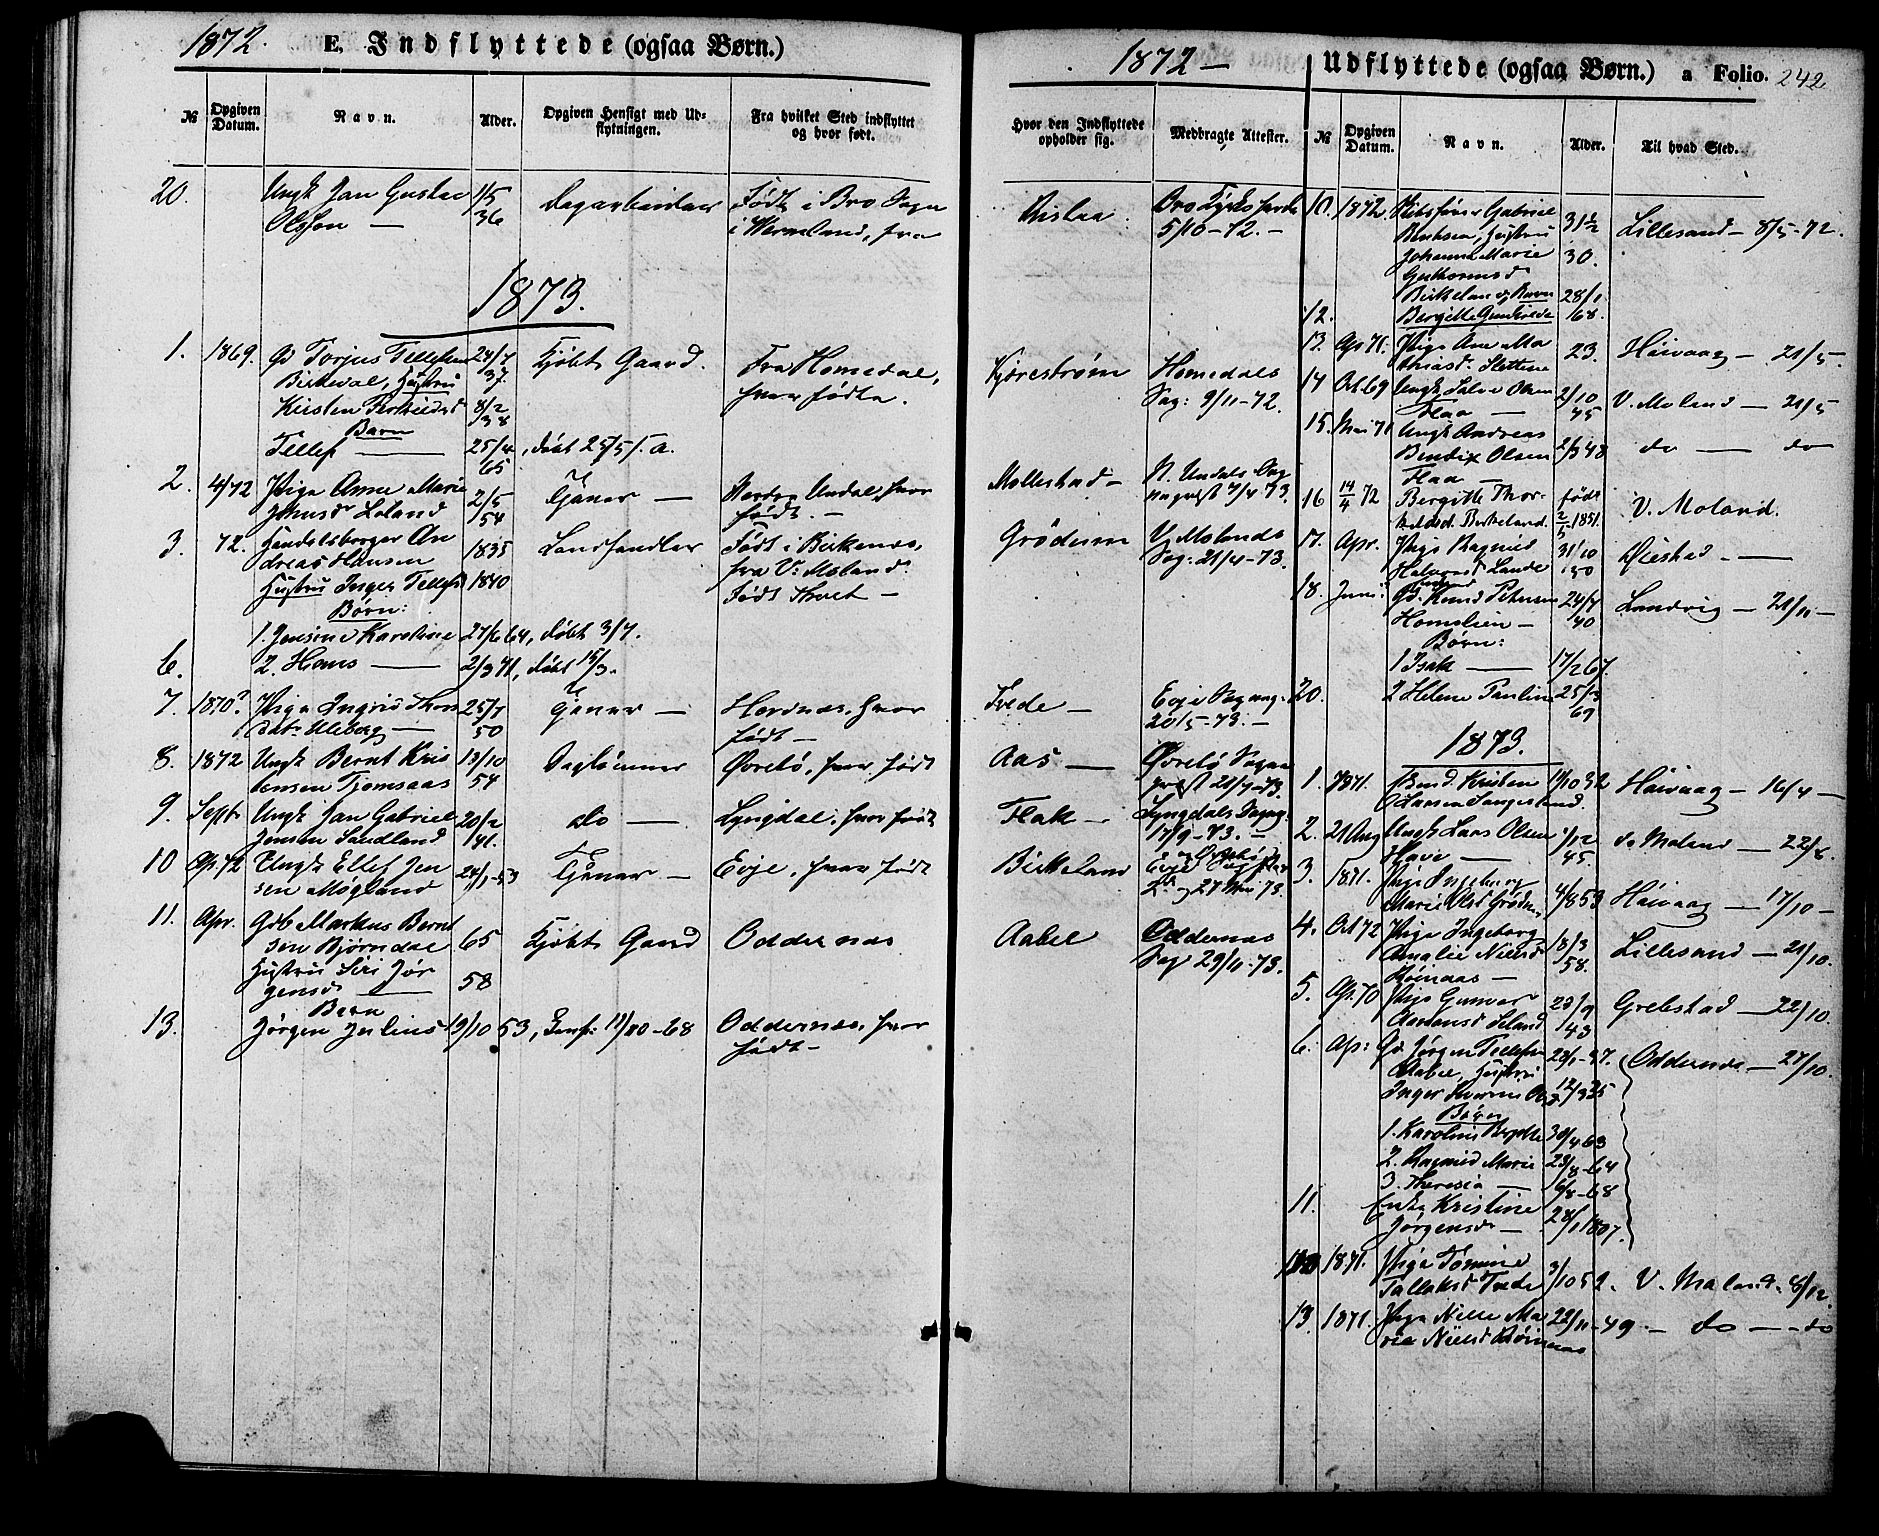 1872. E. Indflyttede (ogsaa Børn.)
№ Opgiven Datum. Navn. Alder. Opgiven Hensigt med Udflytningen. Fra hvilket Sted indflyttet og hvor født.
20. Ungk Jan Gustav 1/5 Dagarbeider Født i Bro Sogn
Olsson — 36 i Wermland, fra
1873.
1. 1869. Gd Torjus Tellefsen 24/7 Kjøbt Gaard. Fra Homedal,
Birkedal, Hustru 37. hvor født.
Kirsten 8/2
38
Barn
Tellef — 25/4, døbt 25/5 f. a.
65
2. 4/72 Pige Anne Marie 2/5 Tjener — Nordre Undal, hvor
Loland 54 født. —
3. 72. Handelsborger An 1835 Landhandler Født i Birkenes,
dreas Hansen fra V. Moland.
Hustru Inger Tellefsd 1840 Født —
Børn:
1. Jensine Karoline 27/6 64, døbt 3/7.
6. 2. Hans — 2/3 71, døbt 15/3.
7. 1870? Pige Ingrid Thors 25/7 Tjener — Hornnes, hvor
datr Uleberg — 50 født —
8. 1872 Ungk Bernt Kris 13/10 Øvrebø, hvor født
tensen Tjomsaas 54
9. Sept Ungk Jan Gabriel 20/2 do — Lyngdal, hvor født
Jensen Sandland 41.
10 Apr. 72 Ungk Ellef Jen 24/1-53 Tjener — Evje, hvor født
sen Møgland
11. Apr. Gdb Markus Bernt
sen Bjørndal 65 Kjøbt Gaard Oddernæs
Hustru Siri Jør
gensd — 58
Børn
13. Jørgen Julius 19/10 53, Conf: 11/10-68 Oddernæs, hvor
født —
1872 — Udflyttede (ogsaa Børn.) a Folio. 242
Hvor den Indflyttede opholder sig. Medbragte Attester. № Opgiven Datum. Navn. Alder. Til hvad Sted.
Bro
5/10-72. —
Kjørestrøm Homedals
Sog: 9/11-72.
Mollestad — N. Undals Sog
7/4-73.
Grødum V. Molands
Sog: 21/4-73.
Trede — Evje Sogng.
20/5-73. —
Aas — Øvrebø Sogne
prest 21/7-73.
Flak — Lyngdals Sogng.
17/9-73. —
Birkeland Evje
27 Mai 73.
Aabel Oddernæs
Sog 29/11-73.
10. 1872 Gabriel 31½ Lillesand — 8/5-72.
Hustru
Johanne Marie 30.
Guthormsd
Birkeland Barn 28/1
12. Bergitte Gundersde 68.
13. Apr 71. Pige Ane Ma 23. Høivaag — 21/5.
thiasd. Slettene
14 Oct. 69 Ungk Salve Olsen 2/10 V. Moland — 21/5
Flaa — 45
15. Mai 71 Ungk Andreas
Bendix Olsen 2/3 48 do — do
Flaa —
16 14/4 72 Bergitte Thor- født V. Moland.
keldsd. Birkeland. 2/5 1851.
17. Apr. Pige Ragnild 31/10 Øiestad —
Halvorsd Lande 50
18. Juni Gd. Knud Petersen 24/7 Landvig — 21/11 —
— 40
Børn:
1 Isak — 17/2 67.
20. 2 Helene Pauline 25/
69
1873.
1. 1871. Kristen 11/10 32 Høivaag — 16/4 —
Larsen Tangesland.
2. 21 Aug Ungk Lars Olsen 1/12 V. Moland — 22/8.
— 45.
3. 1871. Pige Ingeborg 4/8 53 Høivaag — 17/10 —
Marie Olsd Grødum
4. Oct 72 Pige Ingeborg 18/3 Lillesand — 21/10.
Amalie Nielsd 58.
Røinaas —
5. Apr. 70 Pige Gunvor 23/9 Grebstad — 22/10.
Aanonsd Seland 43
6. Apr: Gd. Jørgen Tellefsen 23/1-27. Oddernæs — 27/10.
Aabel, Hustru
Inger 12/3 25
Børn
1. Karoline 30/4 63
2. Ragnild Marie 23/8-64
3. Theresia — 6/8-68
11. Enke Kristine
Jørgensd — 28/1 1807.
12 1871. Pige Tomine 3/10 52. V. Moland. 8/12.
Tallaksd Trede
13. 1871. Pige Nille Ma 22/11-49 — do — do
rie Nielsd Røinaas